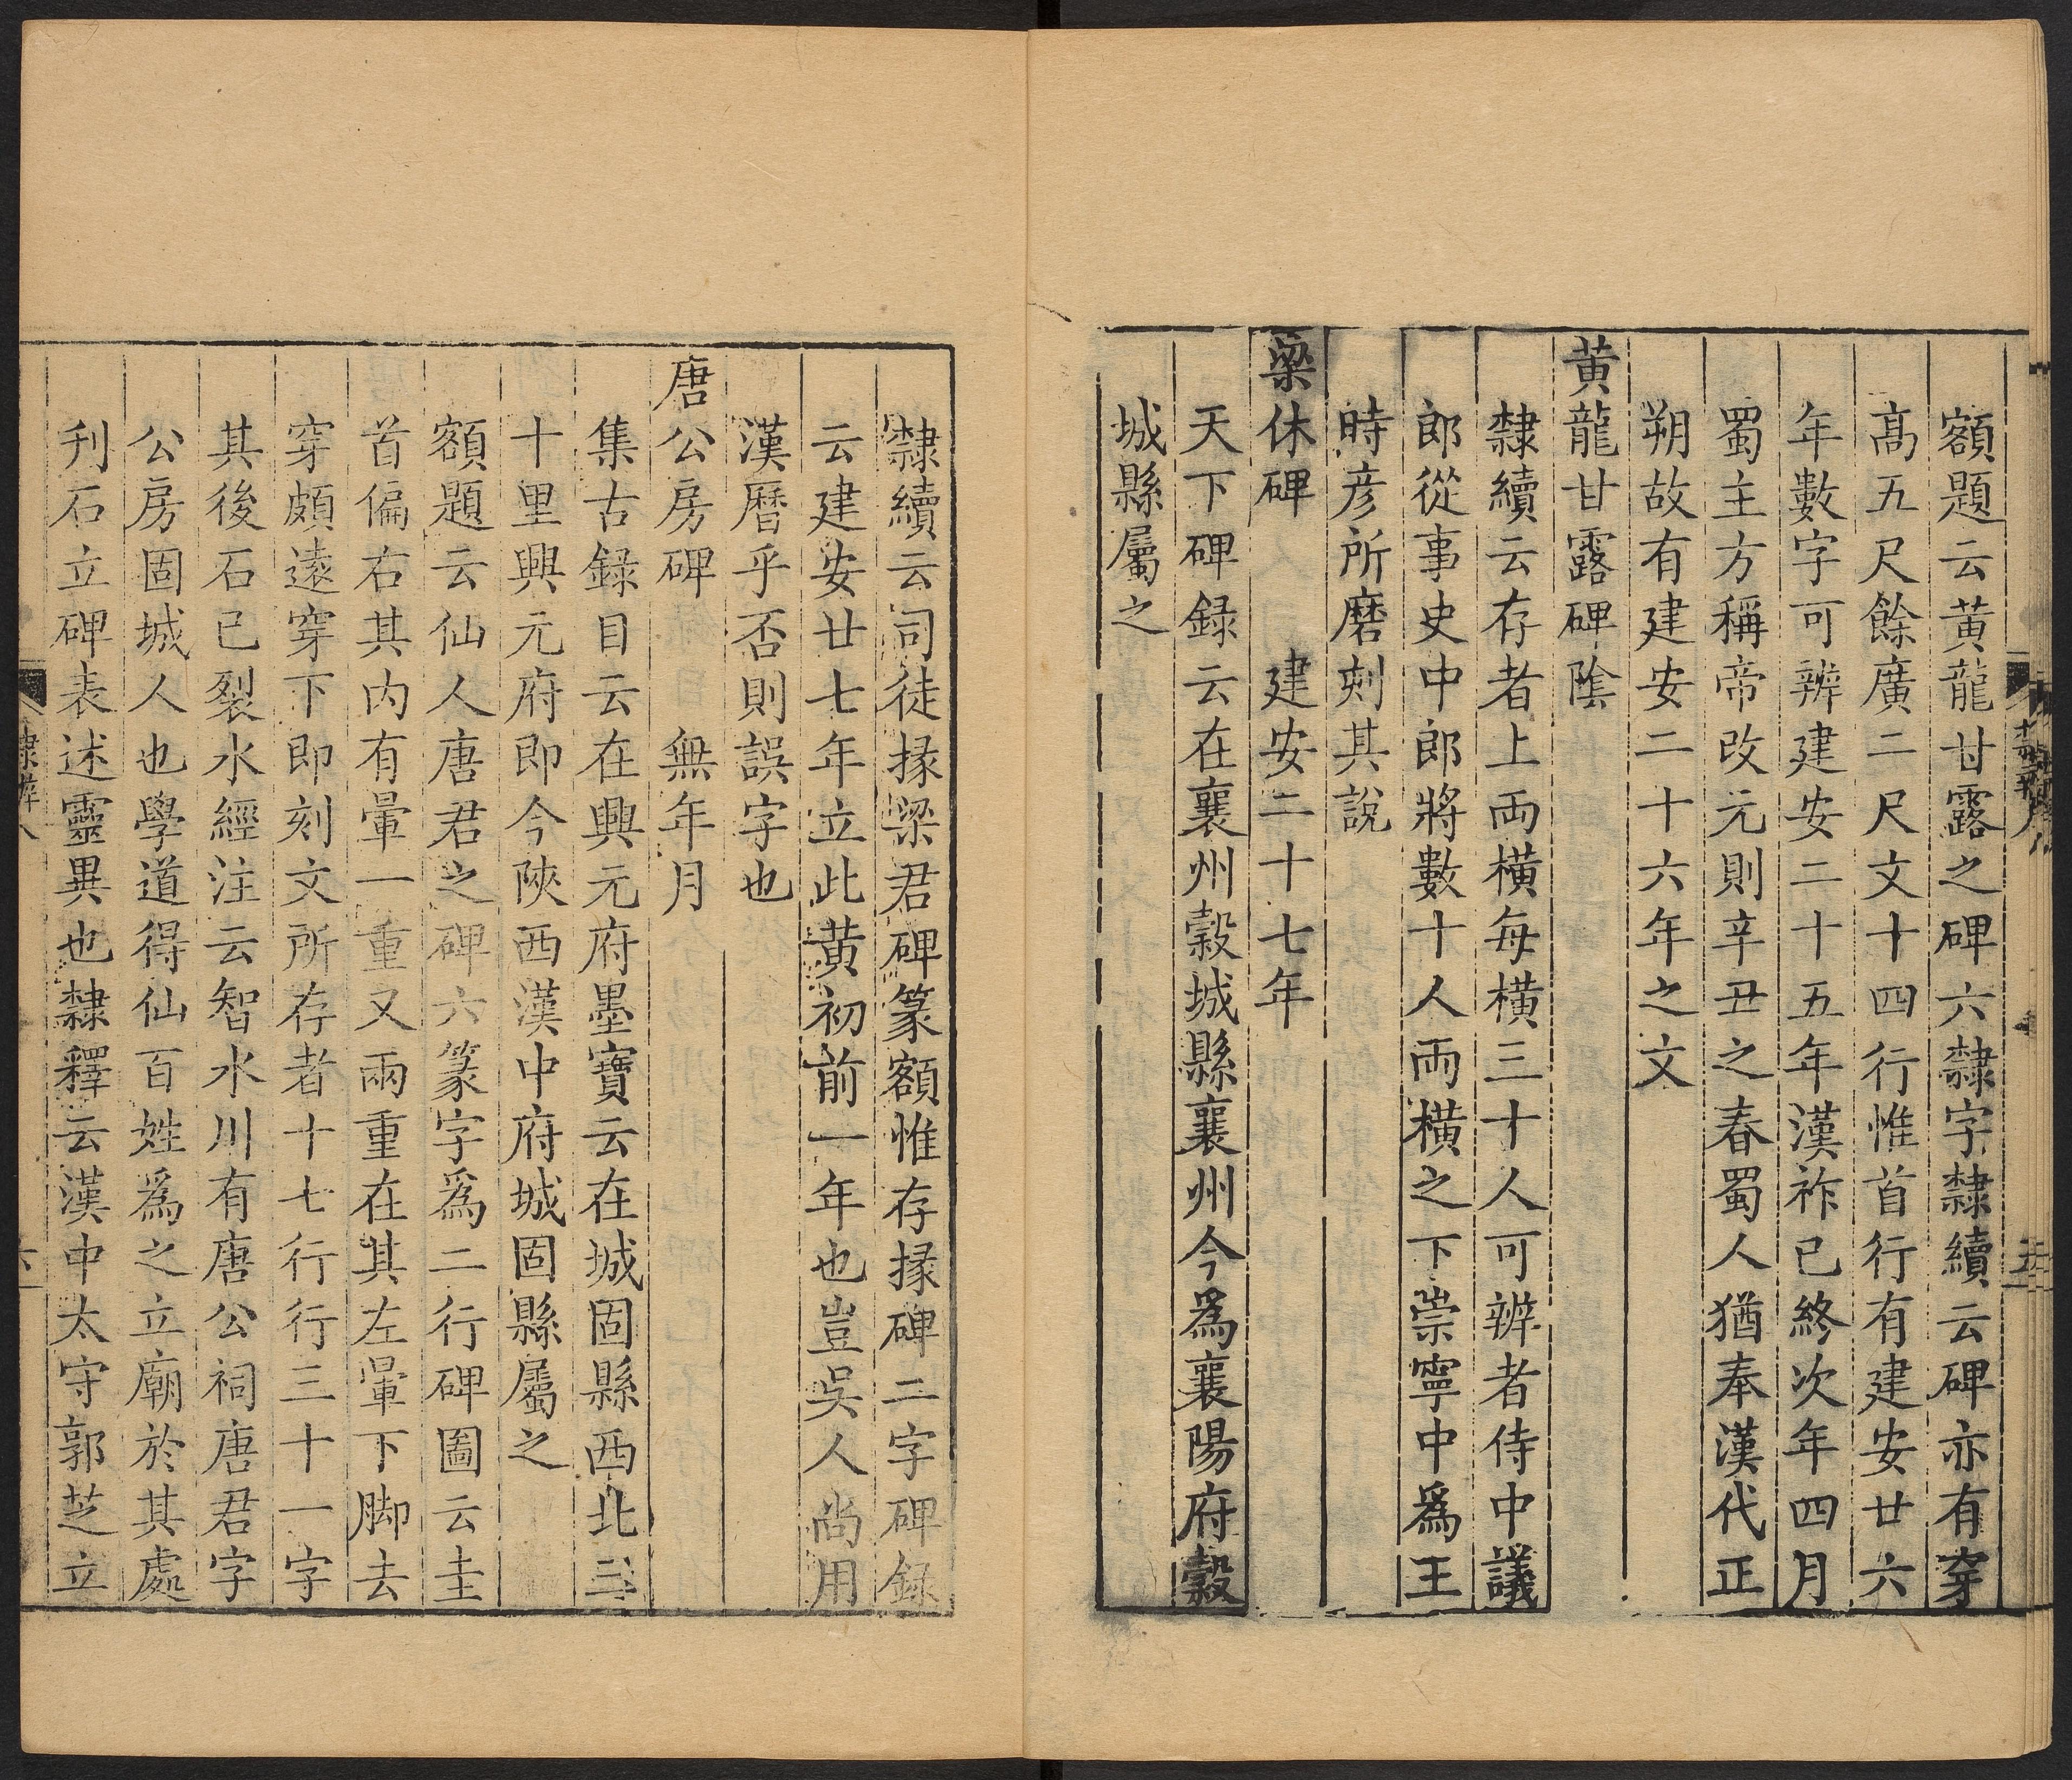 額題云黄龍甘露之碑六隸字隸續云碑亦有穿
髙五尺餘廣二尺文十四行惟首行有建安廿六
年數字可辨建安二十五年漢祚已終次年四月
蜀主方稱帝改元則辛丑之春蜀人猶奉漢代正
朔故有建安二十六年之文
黄龍甘露碑陰
隸續云存者上両橫每橫三十人可辨者侍中議
郎從事史中郎將數十人両橫之下崇寧中爲王
時彥所磨刻其說
梁休碑 建安二十七年
天下碑録云在襄州穀城縣襄州今爲襄陽府穀
城縣屬之
隸續云司徒掾梁君碑篆額惟存掾碑二字碑録
云建安廿七年立此黄初前一年也豈吳人尚用
漢曆乎否則誤字也
唐公房碑 無年月
集古録目云在興元府墨寶云在城固縣西北三
十里興元府即今陝西漢中府城固縣屬之
額題云仙人唐君之碑六篆字爲二行碑圖云圭
首偏右其内有暈一重又兩重在其左暈下脚去
穿頗遠穿下即刻文所存者十七行行三十一字
其後石已裂水經注云智水川有唐公祠唐君字
公房固城人也學道得仙百姓爲之立廟於其處
刋石立碑表述靈異也隸釋云漢中太守郭芝立